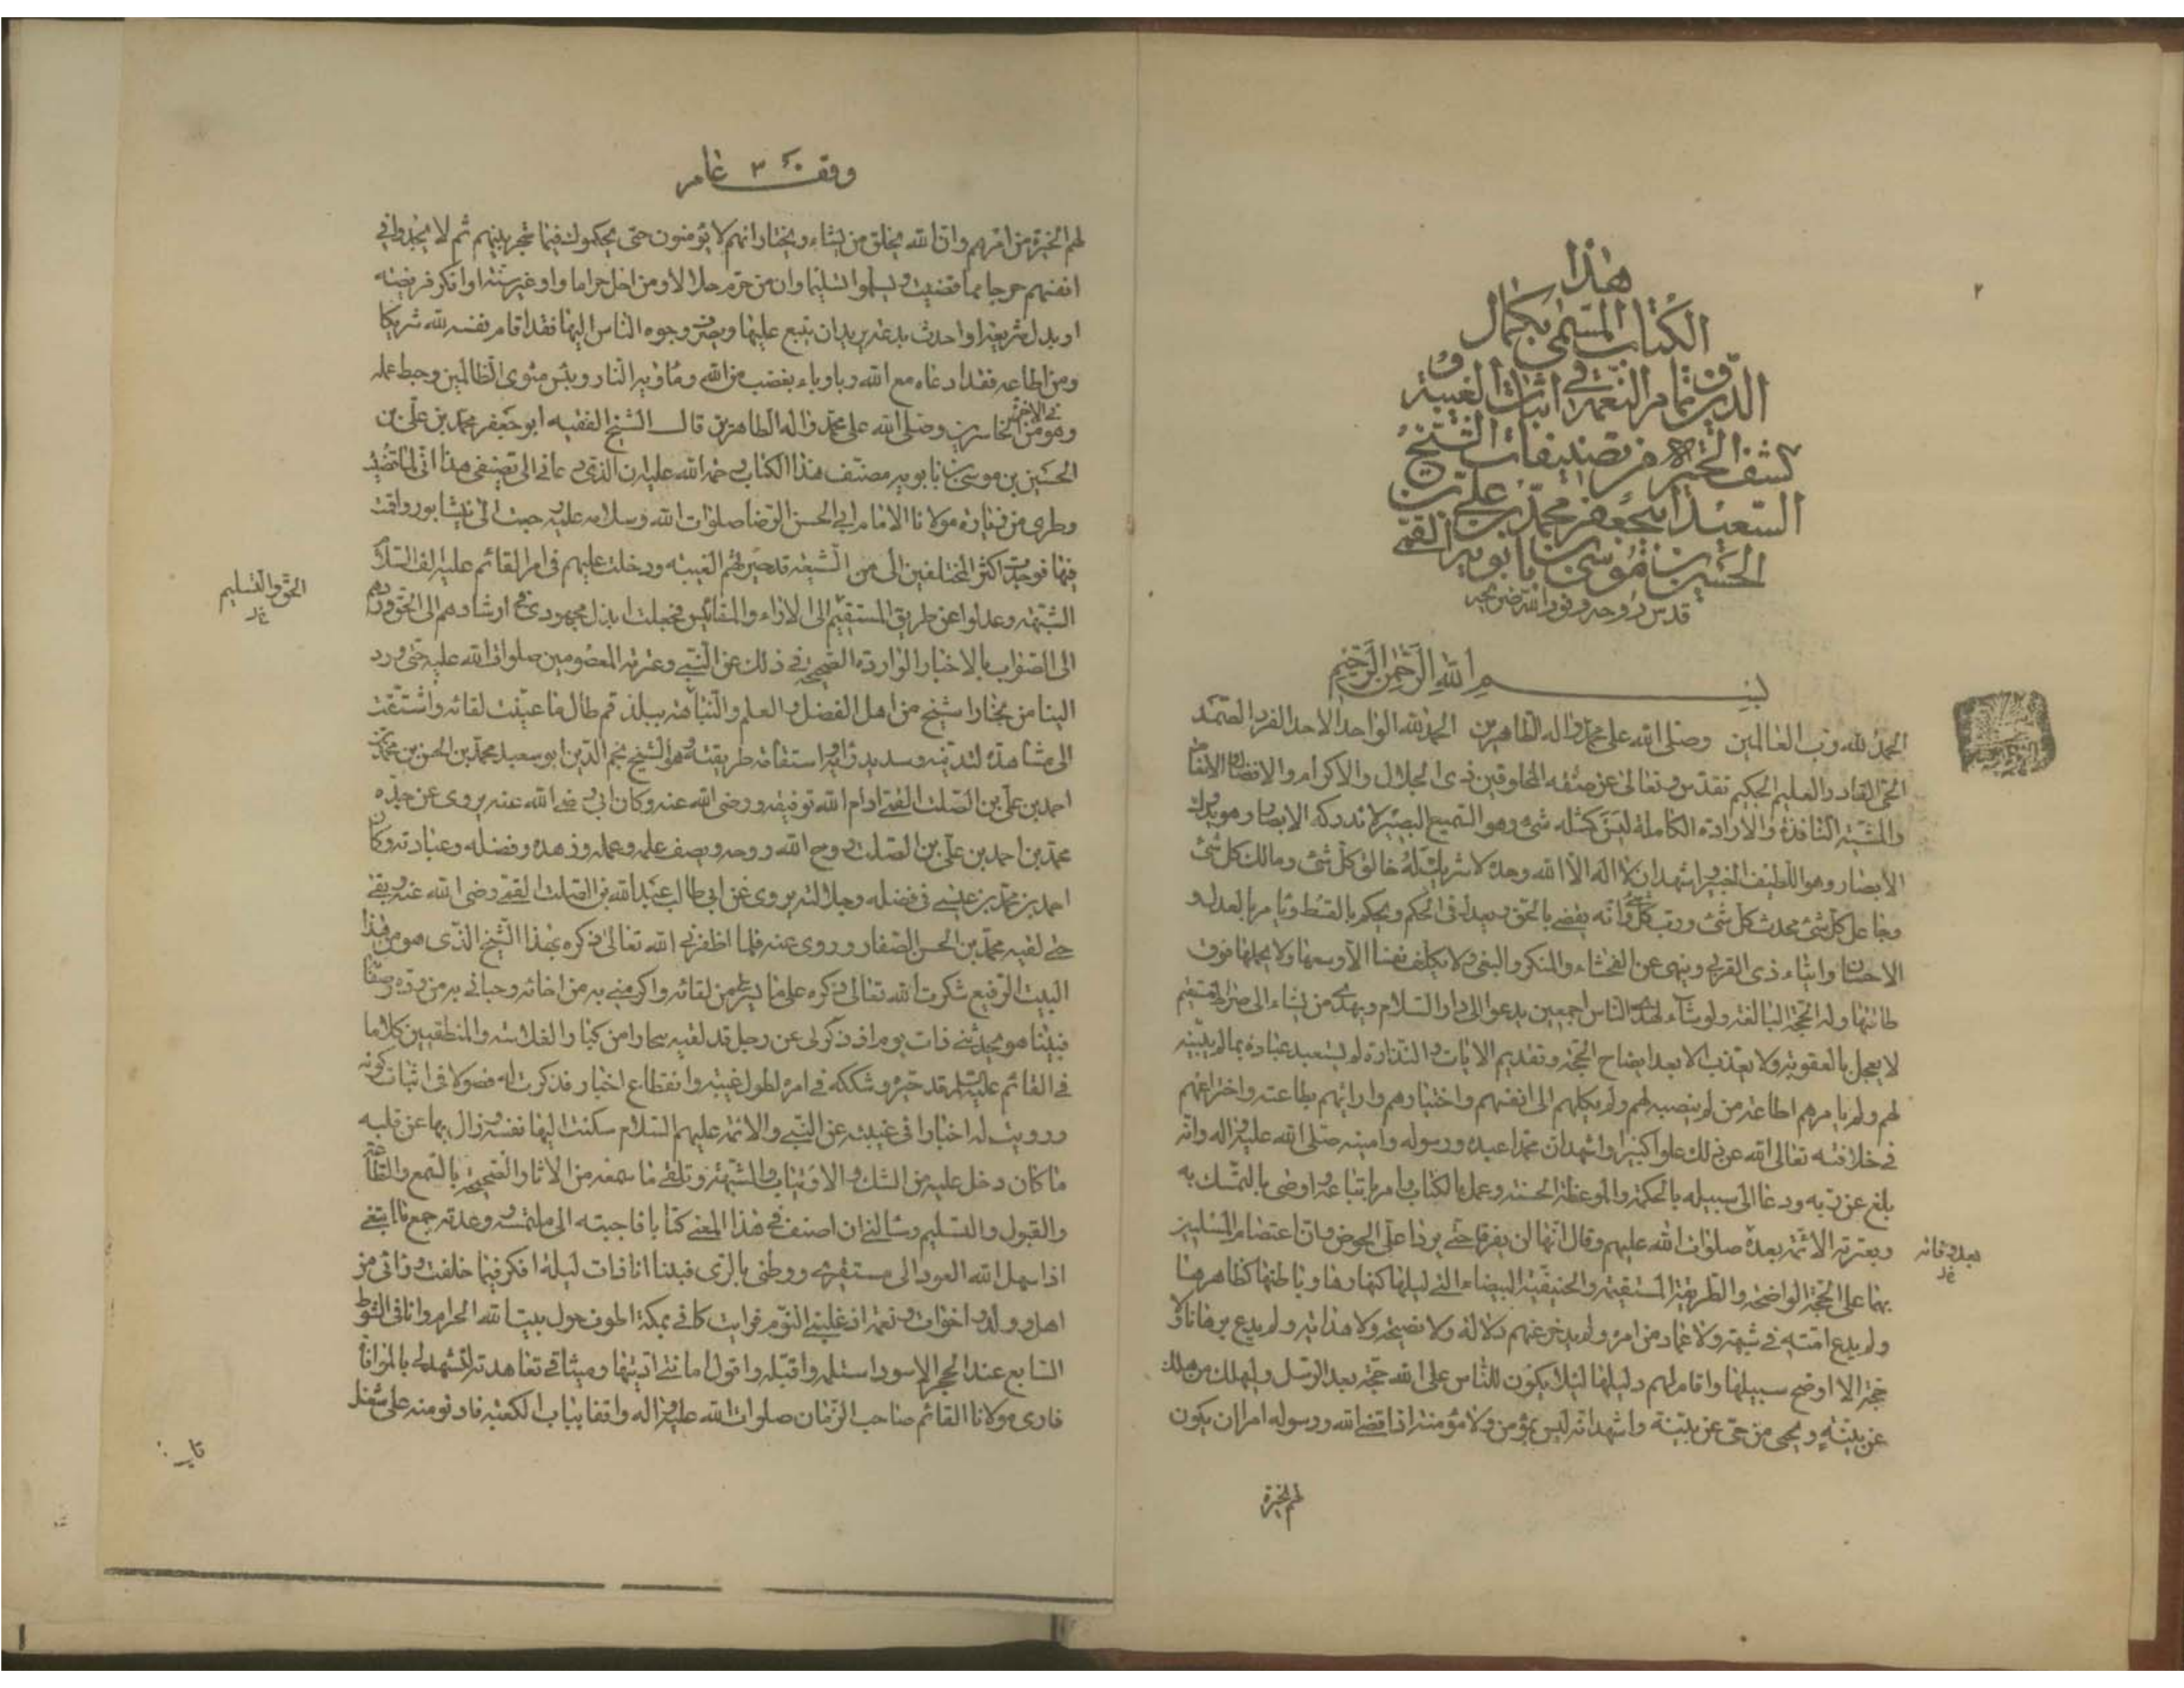 ٢
هذا
الكتاب المسمى بكمال
الدين وتمام النعمة في اثبات الغيبة و
كشف الحيرة من تصنيفات الشيخ
السعيد ابيجعفر محمد بن علي بن
الحسين بن موسى بن بابويه القمي
قدس روحه ونور الله ضريحه
بسم الله الرحمن الرحيم
الحمد لله رب العالمين وصلى الله على محمد واله الطاهرين الحمد لله الواحد الاحد الفرد الصمد
الحى القادر العليم الحكيم تقدس وتعالى عن صفة المخلوقين ذى الجلال والاكرام والافضال والانعام
والمشية النافذة والارادة الكاملة ليس كمثله شىء وهو السميع البصير لا تدركه الابصار وهو يدرك
الابصار وهو اللطيف الخبير واشهد ان لا اله الا الله وحده لا شريك له خالق كل شىء ومالك كل شىء
وجاعل كل شىء ومحدث كل شىء ورب كل شىء وانه يقضى بالحق ويعدل فى الحكم ويحكم بالقسط ويامر بالعدل و
الاحسان وايتاء ذى القربى وينهى عن الفحشاء والمنكر والبغى ولا يكلف نفسا الا وسعها ولا يحملها فوق
طاقتها وله الحجة البالغة ولو شاء لهدى الناس اجمعين يدعو الى دار السلام ويهدى من يشاء الى صراط مستقيم
لا يعجل بالعقوبة ولا يعذب الا بعد ايضاح الحجة وتقديم الايات والنذارة لم يستعبد عباده بما لم يبينه
لهم ولم يامرهم اطاعة من لم ينصبه لهم ولم يكلهم الى انفسهم واختيارهم وارائهم بطاعته واختراعهم
فى خلافته تعالى الله عن ذلك علوا كبيرا واشهد ان محمدا عبده ورسوله وامينه صلى الله عليه واله وانه
بلغ عن ربه ودعا الى سبيله بالحكمة والموعظة الحسنة وعمل بالكتاب وامر باتباعه واوصى بالتمسك به
وبعترته الائمة بعده صلوات الله عليهم وقال انهما لن يفترقا حتى يردا على الحوض وان اعتصام المسلمين
بعد وفاته
بهما على المحجة الواضحة والطريقة المستقيمة والحنيفية البيضاء التى ليلها كنهارها وباطنها كظاهرها
ولم يدع امته فى شبهة ولا عماد من امره ولم يدخر عنهم دلالة ولا نصيحة ولا هداية ولم يدع برهانا ولا
حجة الا اوضح سبيلها واقام لهم دليلها لئلا يكون للناس على الله حجة بعد الرسل وليهلك من هلك
عن بينة ويحيى من حى عن بينة واشهد انه ليس بمؤمن ولا مؤمنة اذا قضى الله ورسوله امرا ان يكون
لهم الخيرة
وقف ٣ عام
لهم الخيرة من امرهم وان الله يخلق من يشاء ويختار انهم لا يؤمنون حتى يحكموك فيما شجر بينهم ثم لا يجدوا فى
انفسهم حرجا مما قضيت ويسلموا تسليما وان من حرم حلالا ومن احل حراما او غير سنة او انكر فريضة
او بدل شريعة او احدث بدعة يريد ان يتبع عليها ويصرف وجوه الناس اليها فقد اقام نفسه لله شريكا
ومن اطاعه فقد ادعاه مع الله وباوباء بغضب من الله وماويه النار وبئس مثوى الظالمين وحبط عمله
وهو فى الاخرة من الخاسرين وصلى الله على محمد واله الطاهرين قال الشيخ الفقيه ابوجعفر محمد بن على بن
الحسين بن موسى بن بابويه مصنف هذا الكتاب رحمة الله عليه ان الذى دعانى الى تصنيفى هذا انى لما قضيت
وطرى من زيارة مولانا الامام ابى الحسن الرضا صلوات الله وسلامه عليه رجعت الى نيشابور واقمت
فيها فوجدت اكثر المختلفين الى من الشيعة قد حيرتهم الغيبة ودخلت عليهم فى امر القائم عليه الف السلام
الشبهة وعدلوا عن طريق المستقيم الى الاراء والمقائيس فجعلت ابذل مجهودى فى ارشادهم الى الحق وردهم
الحق والتسليم
الى الصواب بالاخبار الواردة الصحيحة فى ذلك عن النبى وعترته المعصومين صلوات الله عليه حتى ورد
الينا من بخارا شيخ من اهل الفضل والعلم والنباهة ببلد قم طال ما تمنيت لقائه واشتقت
الى مشاهدته لدينه وسديد رايه واستقامة طريقته وهو الشيخ نجم الدين ابو سعيد محمد بن الحسن بن محمد بن
احمد بن على بن الصلت القمى ادام الله توفيقه ورضى الله عنه وكان ابى رضى الله عنه يروى عن جده
محمد بن احمد بن على بن الصلت روح الله روحه ويصف علمه وعمله وزهده وفضله وعبادته وكان
احمد بن محمد بن عيسى فى فضله وجلالته يروى عن ابى طالب عبد الله بن الصلت القمى رضى الله عنه وبقى
حتى لقيه محمد بن الحسن الصفار وروى عنه فلما اظفرنى الله تعالى ذكره بهذا الشيخ الذى هو من هذا
البيت الرفيع شكرت الله تعالى ذكره على ما يسر لى من لقائه واكرمنى به من اخائه وحبانى به من وده وصفائه
فبينا هو يحدثنى ذات يوم اذ ذكر لى عن رجل قد لقيه ببخارا من كبار الفلاسفة والمنطقيين كلاما
فى القائم عليه السلم قد حيره وشككه فى امره لطول غيبته وانقطاع اخباره فذكرت له فصولا فى اثبات كونه
ورويت له اخبارا فى غيبته عن النبى والائمة عليهم السلام سكنت اليها نفسه وزال بها عن قلبه
ما كان دخل عليه من الشك والارتياب والشبهة وتلقى ما سمعه من الاثار الصحيحة بالسمع والطاعة
والقبول والتسليم وسالنى ان اصنف فى هذا المعنى كتابا فاجبته الى ملتمسه ووعدته جمع ما ابتغى
اذا سهل الله العود الى مستقرى ووطنى بالرى فبينا انا ذات ليلة افكر فيما خلفت ورائى من
اهل وولد واخوات ونعمة اذ غلبنى النوم فرايت كانى بمكة اطوف حول بيت الله الحرام وانا فى الشوط
السابع عند الحجر الاسود استلمه واقبله واقول امانتى اديتها وميثاقى تعاهدته لتشهد لى بالموافاة
فارى مولانا القائم صاحب الزمان صلوات الله عليه واله واقفا بباب الكعبة فادنو منه على شغل